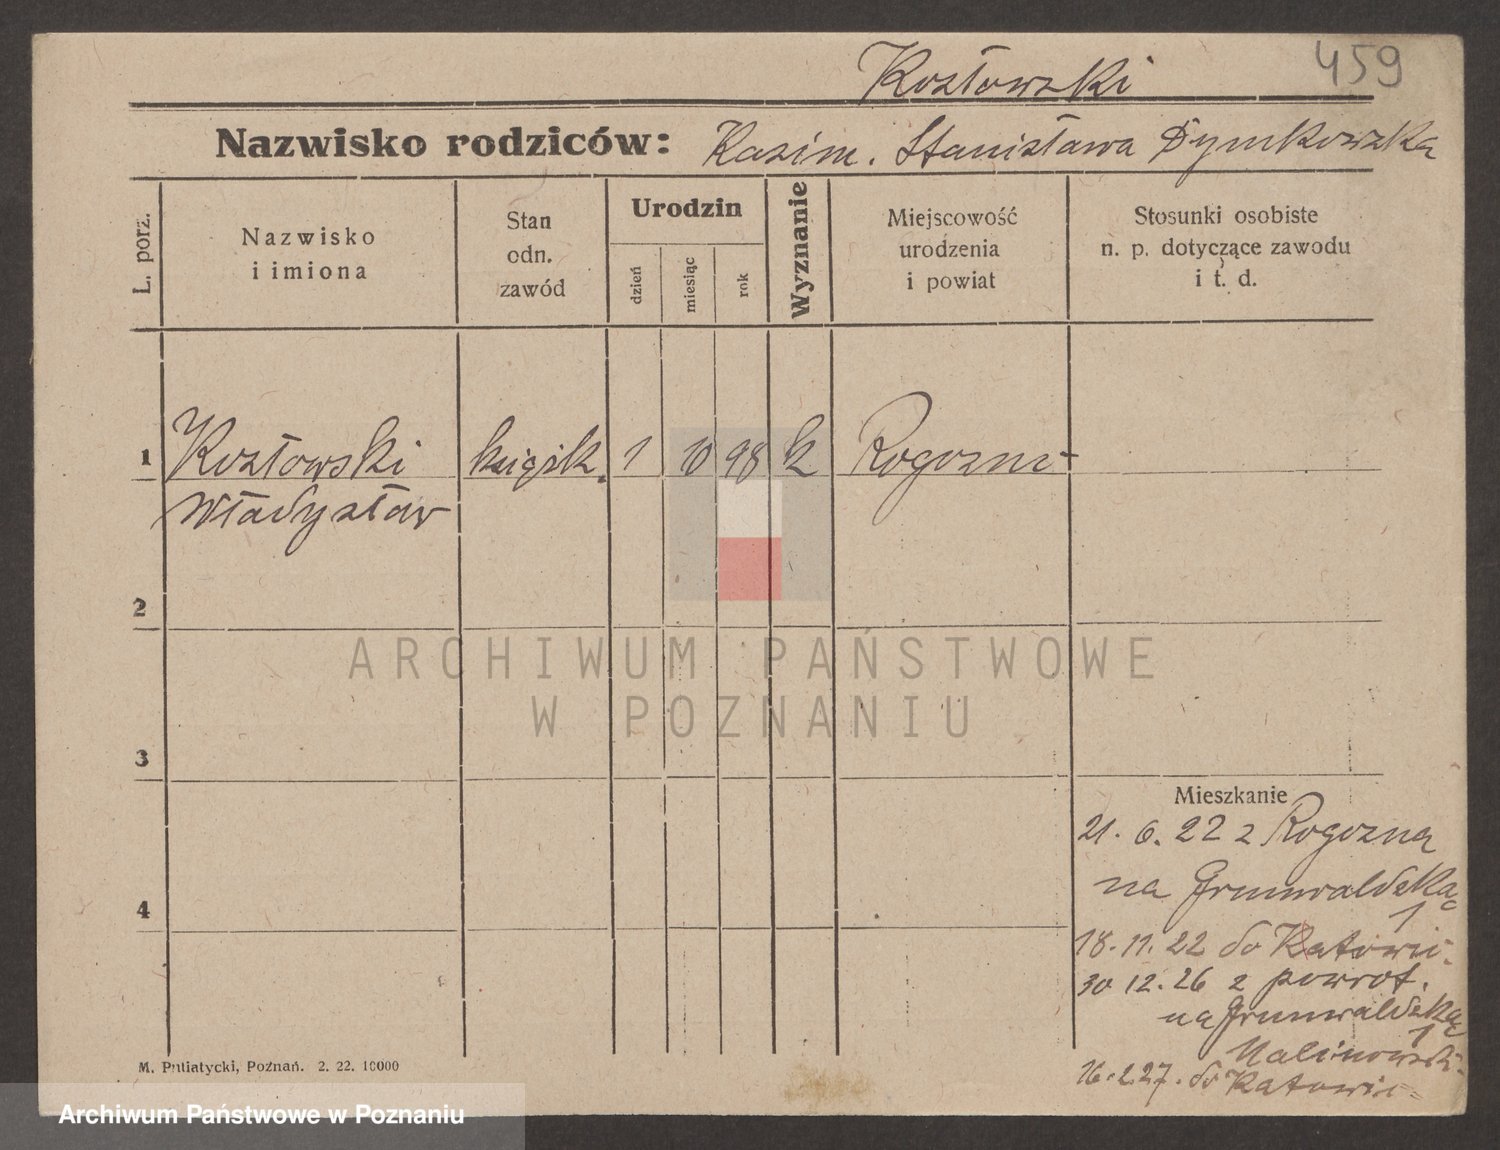 459
Kozłowski
Nazwisko rodziców: Kazim. Stanisława Dymkowska
L. porz.
Nazwisko
i imiona
Stan
odn.
zawód
Urodzin
dzień
miesiąc
rok
Wyznanie
Miejscowość
urodzenia
i powiat
Stosunki osobiste
n. p. dotyczące zawodu
i t. d.
1 Kozłowski książk. 1 10 98 k Rogozno
Władysław
2
ARCHIWUM PAŃSTWOWE
W POZNANIU
3
Mieszkanie
21. 6. 22 z Rogozna
na Grunwaldzką
1
4
18. 11. 22 do Katowic
30 12. 26 z powrot.
na Grunwaldzką
1
Malinowski
16. 2 27. do Katowic
M. Putiatycki, Poznań. 2. 22. 10000
Archiwum Państwowe w Poznaniu